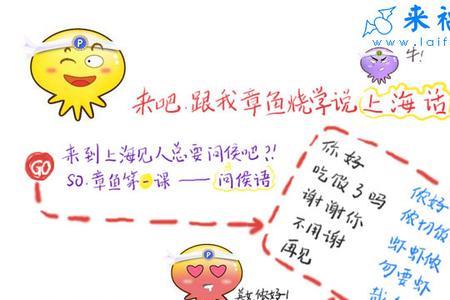 来福
www.laif
牛!
来吧.跟我章鱼烧学说上海话
来到上海见人总要问侯吧?!
GO
SO.章鱼第一课——问侯语
你好
吃饭了吗
谢谢你
不用谢
再见
侬好
侬切饭
虾虾侬
勿要虾
侬好!
P
P